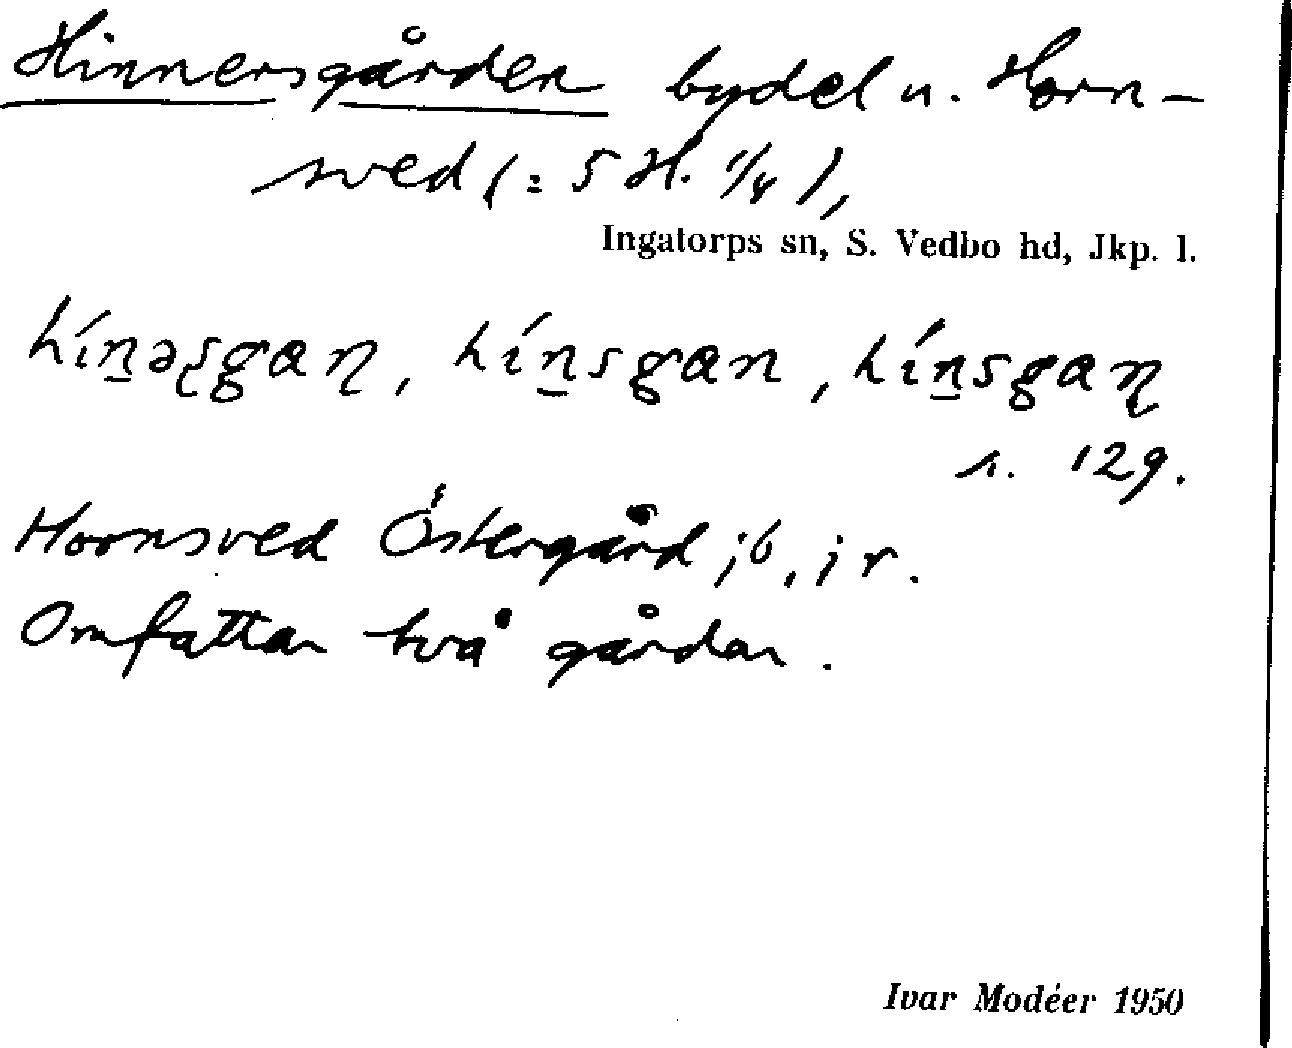 Hinnersgården bydel u. Horn-
sved (= 5 H. 1/4),
Ingatorps sn, S. Vedbo hd, Jkp. l.
hín̠əʂgaɳ, hín̠sgan, hín̠sgaɳ
s. 129.
Hornsved Östergård jb, jr.
Omfattar två gårdar.
Ivar Modéer 1950